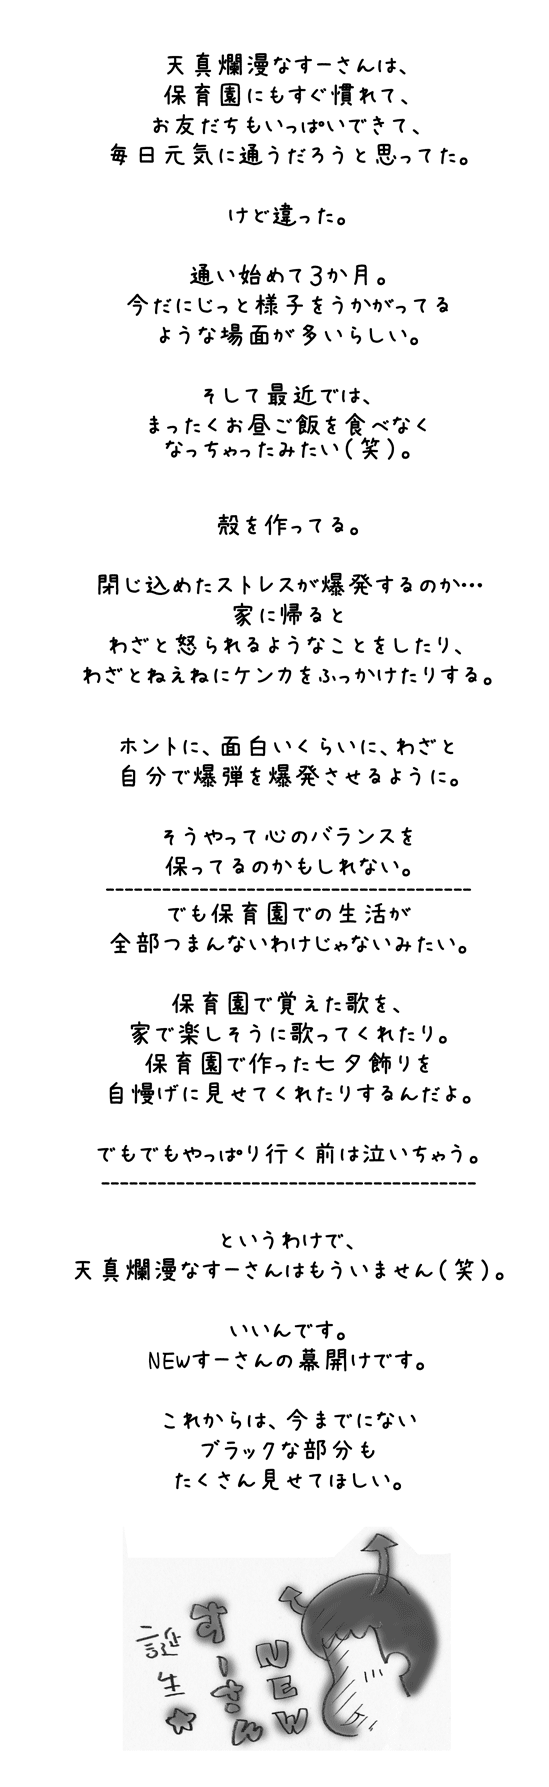 天真爛漫なすーさんは、
保育園にもすぐ慣れて、
お友だちもいっぱいできて、
毎日元気に通うだろうと思ってた。
けど違った。
通い始めて3か月。
今だにじっと様子をうかがってる
ような場面が多いらしい。
そして最近では、
まったくお昼ご飯を食べなく
なっちゃったみたい(笑)。
殻を作ってる。
閉じ込めたストレスが爆発するのか…
家に帰ると
わざと怒られるようなことをしたり、
わざとねえねにケンカをふっかけたりする。
ホントに、面白いくらいに、わざと
自分で爆弾を爆発させるように。
そうやって心のバランスを
保ってるのかもしれない。
---------------------------------------
でも保育園での生活が
全部つまんないわけじゃないみたい。
保育園で覚えた歌を、
家で楽しそうに歌ってくれたり。
保育園で作った七夕飾りを
自慢げに見せてくれたりするんだよ。
でもでもやっぱり行く前は泣いちゃう。
----------------------------------------
というわけで、
天真爛漫なすーさんはもういません(笑)。
いいんです。
NEWすーさんの幕開けです。
これからは、今までにない
ブラックな部分も
たくさん見せてほしい。
NEW
すーさん
誕生☆